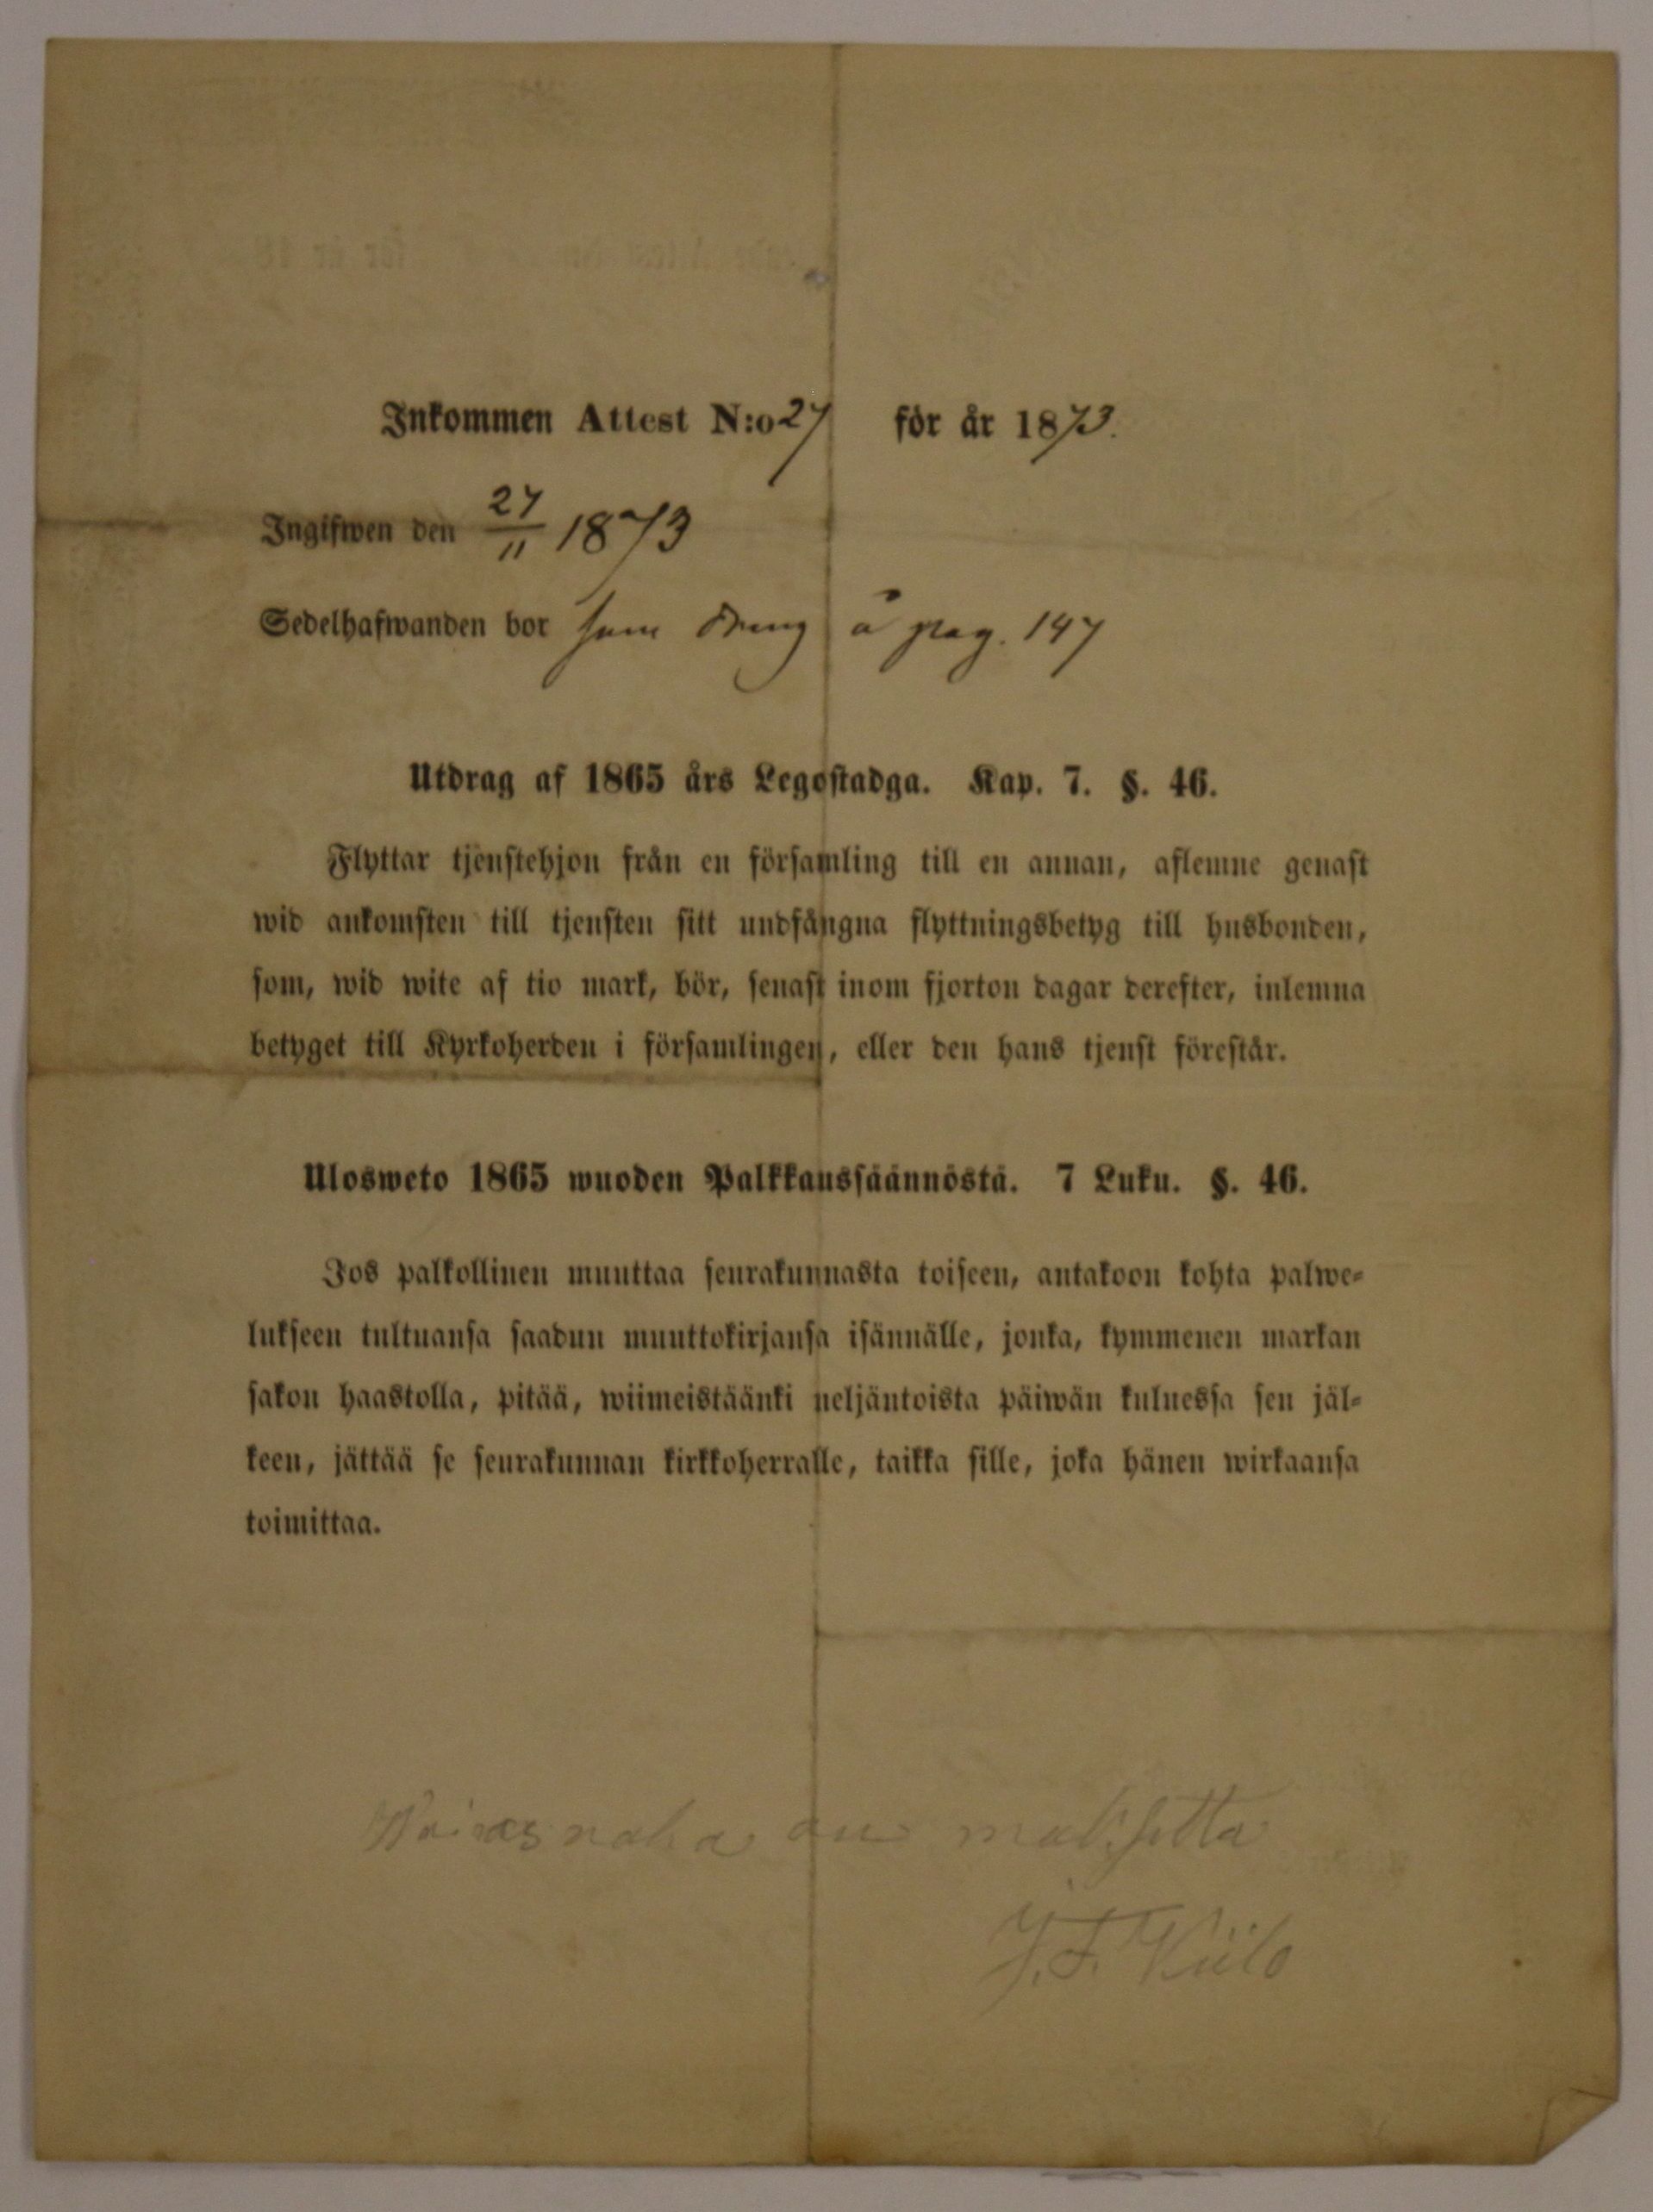 Inkommen Attest N:o 27 för år 1873.
Ingifwen den 27/11 1873
Sedelhafwanden bor som dreng å pag. 147
Utdrag af 1865 års Legostadga. Kap. 7. §. 46.
Flyttar tjenstehjon från en församling till en annan, aflemne genast
wid ankomsten till tjensten sitt undfångna flyttningsbetyg till husbonden,
som, wid wite af tio mark, bör, senast inom fjorton dagar derefter, inlemna
betyget till Kyrkoherden i församlingen, eller den hans tjenst förestår.
Ulosweto 1865 wuoden Palkkaussäännöstä. 7 Luku. §. 46.
Jos palkollinen muuttaa seurakunnasta toiseen, antakoon kohta palwe-
lukseen tultuansa saadun muuttokirjansa isännälle, jonka, kymmenen markan
sakon haastolla, pitää, wiimeistäänki neljäntoista päiwän kuluessa sen jäl-
keen, jättää se seurakunnan kirkkoherralle, taikka sille, joka hänen wirkaansa
toimittaa.
on maksetta
J. F.